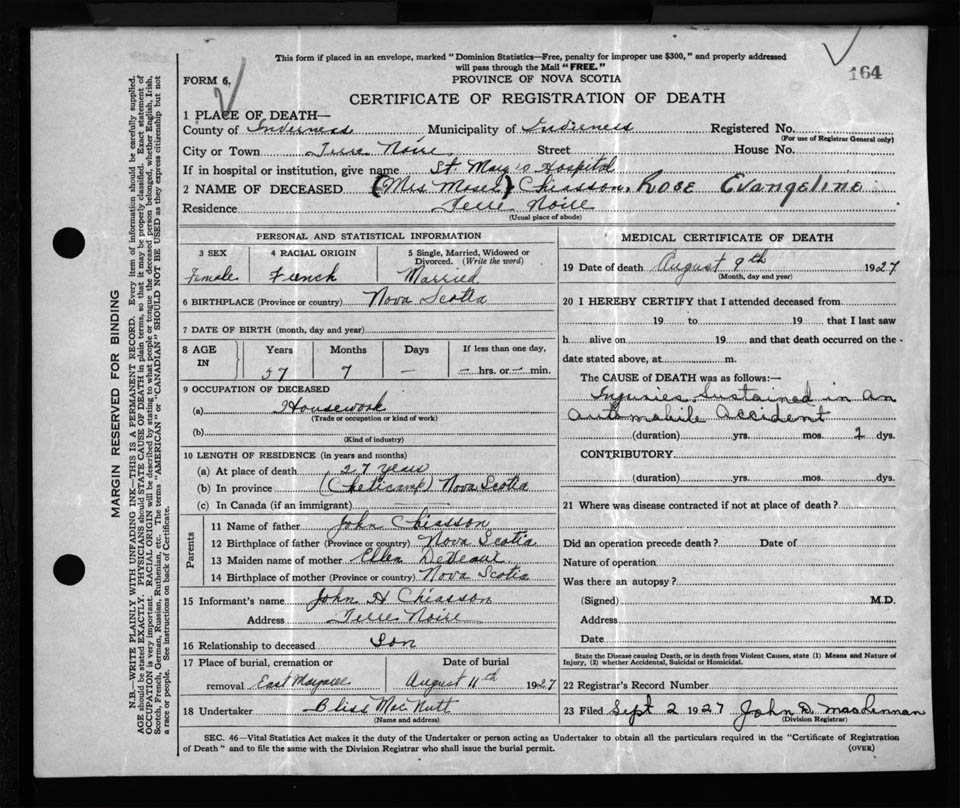 This form if placed in an envelope, marked "Dominion Statistics—Free, penalty for improper use $300," and properly addressed
will pass through the Mail "FREE."
164
FORM 6.
PROVINCE OF NOVA SCOTIA
CERTIFICATE OF REGISTRATION OF DEATH
1 PLACE OF DEATH—
County of Inverness Municipality of Inverness Registered No.
(For use of Registrar General only)
City or Town Terre Noire Street House No.
If in hospital or institution, give name St. Mary's Hospital
2 NAME OF DECEASED (Mrs Moses) Chiasson, Rose Evangeline
Residence Terre Noire
(Usual place of abode)
PERSONAL AND STATISTICAL INFORMATION
3 SEX 4 RACIAL ORIGIN 5 Single, Married, Widowed or
Divorced. (Write the word)
Female French Married
6 BIRTHPLACE (Province or country) Nova Scotia
7 DATE OF BIRTH (month, day and year)
8 AGE IN Years Months Days If less than one day,
57 7 — — hrs. or — min.
9 OCCUPATION OF DECEASED
(a) Housework
(Trade or occupation or kind of work)
(b)
(Kind of industry)
10 LENGTH OF RESIDENCE (in years and months)
(a) At place of death 27 years
(b) In province (Cheticamp) Nova Scotia
(c) In Canada (if an immigrant)
Parents
11 Name of father John Chiasson
12 Birthplace of father (Province or country) Nova Scotia
13 Maiden name of mother Ellen DeVeaux
14 Birthplace of mother (Province or country) Nova Scotia
15 Informant's name John H Chiasson
Address Terre Noire
16 Relationship to deceased Son
17 Place of burial, cremation or Date of burial
removal East Margaree August 11th 1927
18 Undertaker Bliss MacNutt
(Name and address)
MEDICAL CERTIFICATE OF DEATH
19 Date of death August 9th 1927
(Month, day and year)
20 I HEREBY CERTIFY that I attended deceased from
19 to 19 that I last saw
h alive on 19 and that death occurred on the
date stated above, at m.
The CAUSE of DEATH was as follows:—
Injuries Sustained in an
Automobile Accident
(duration) yrs. mos. 2 dys.
CONTRIBUTORY
(duration) yrs. mos. dys.
21 Where was disease contracted if not at place of death?
Did an operation precede death? Date of
Nature of operation
Was there an autopsy?
(Signed) M.D.
Address
Date
State the Disease causing Death, or in death from Violent Causes, state (1) Means and Nature of
Injury, (2) whether Accidental, Suicidal or Homicidal.
22 Registrar's Record Number
23 Filed Sept 2 1927 John D. MacLennan
(Division Registrar)
SEC. 46—Vital Statistics Act makes it the duty of the Undertaker or person acting as Undertaker to obtain all the particulars required in the "Certificate of Registration
of Death" and to file the same with the Division Registrar who shall issue the burial permit.
(OVER)
MARGIN RESERVED FOR BINDING
N.B.—WRITE PLAINLY WITH UNFADING INK—THIS IS A PERMANENT RECORD. Every item of information should be carefully supplied.
AGE should be stated EXACTLY. PHYSICIANS should STATE CAUSE OF DEATH in plain terms, so that it may be properly classified. Exact statement of
OCCUPATION is very important. RACIAL ORIGIN will be described by stating to what people or tongue the deceased person belonged, whether English, Irish,
Scotch, French, German, Russian, Ruthenian, etc. The terms "AMERICAN" or "CANADIAN" SHOULD NOT BE USED as they express citizenship but not
a race or people. See instructions on back of Certificate.